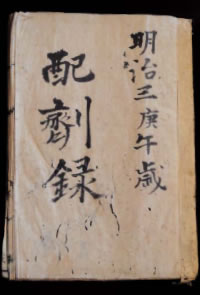 明治三庚午歳
配劑録